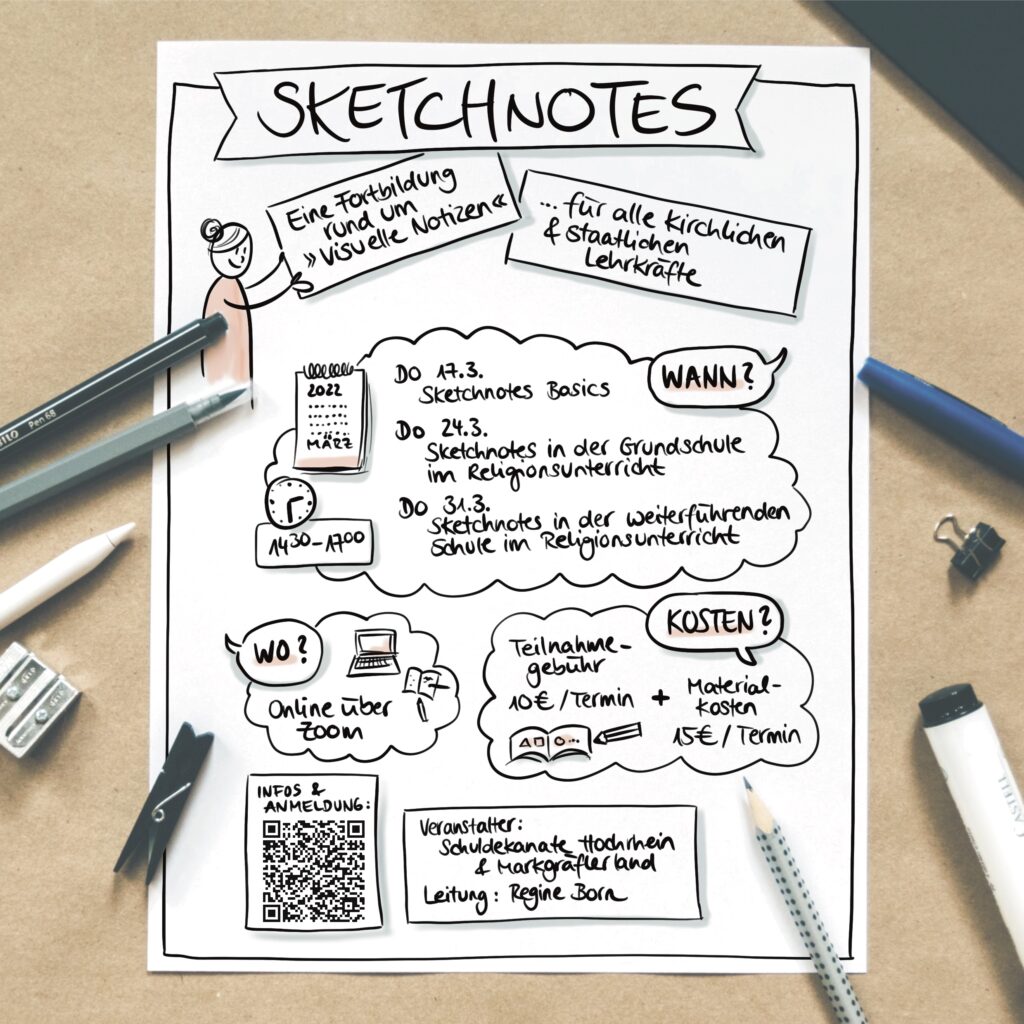 SKETCHNOTES
Eine Fortbildung
rund um
»Visuelle Notizen«
... für alle kirchlichen
& staatlichen
Lehrkräfte
WANN?
2022
MÄRZ
14 30 - 17 00
Do 17.3.
Sketchnotes Basics
Do 24.3.
Sketchnotes in der Grundschule
im Religionsunterricht
Do 31.3.
Sketchnotes in der weiterführenden
Schule im Religionsunterricht
WO?
Online über
Zoom
KOSTEN?
Teilnahme-
gebühr
10€/Termin
+
Material-
kosten
15€/Termin
INFOS &
ANMELDUNG:
Veranstalter:
Schuldekanate Hochrhein
& Markgräflerland
Leitung: Regine Born
Pen 68